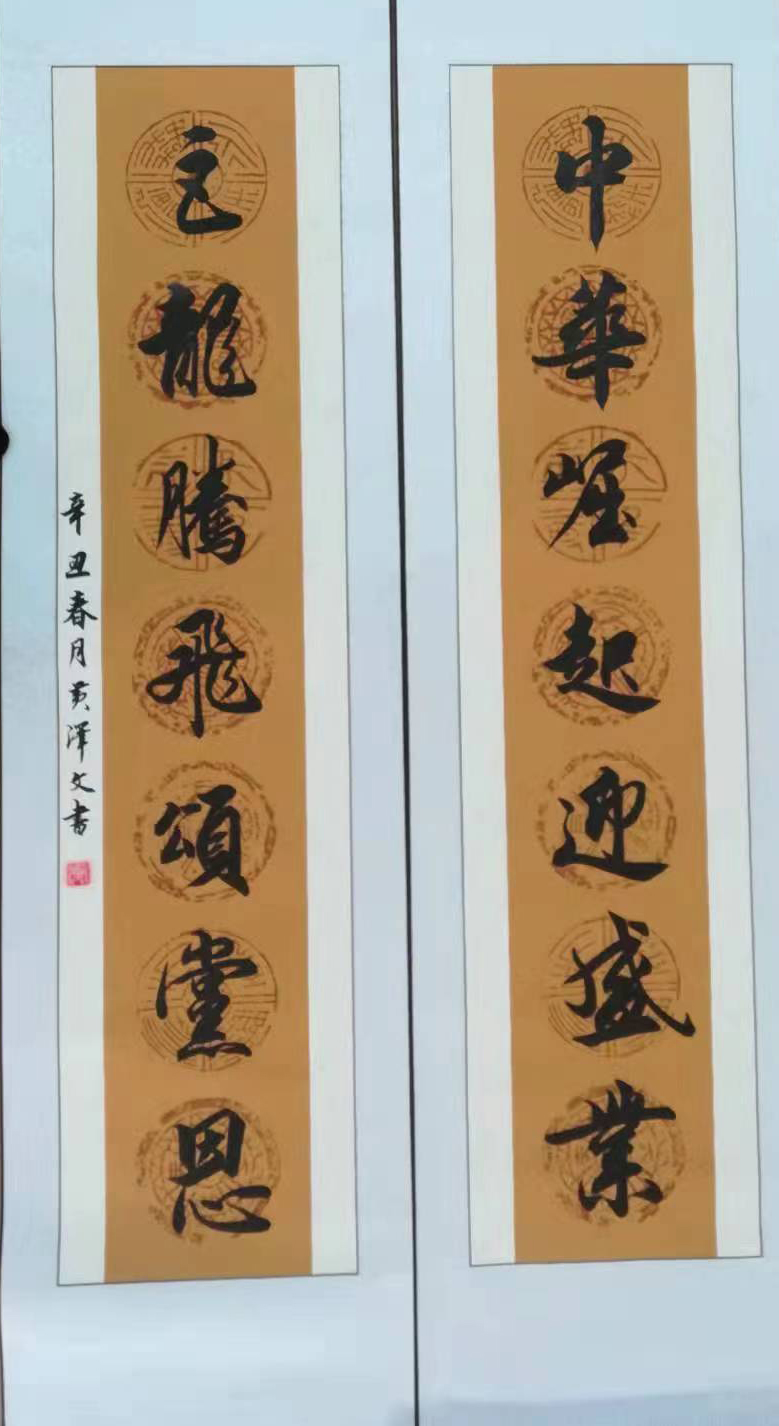 中華崛起迎盛業
巨龍騰飛頌黨恩
辛丑春月黃澤文書